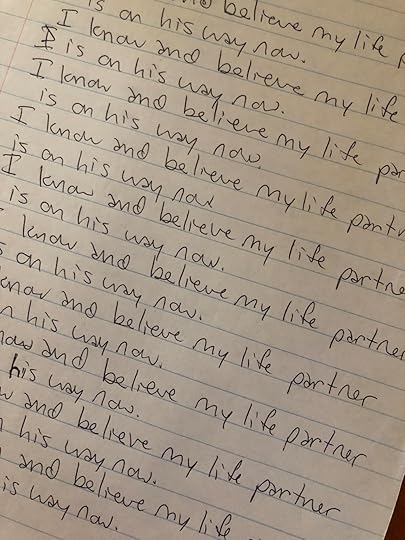 is on his way now.
and believe my life
I know and believe my life
is on his way now.
I know and believe my life
is on his way now.
I know and believe my life
is on his way now
I know and believe my life
is on his way now.
know and believe my life partner
on his way now.
know and believe my life partner
on his way now.
and believe my life partner
his way now.
and believe my life partner
his way now.
and believe my life
is way now.